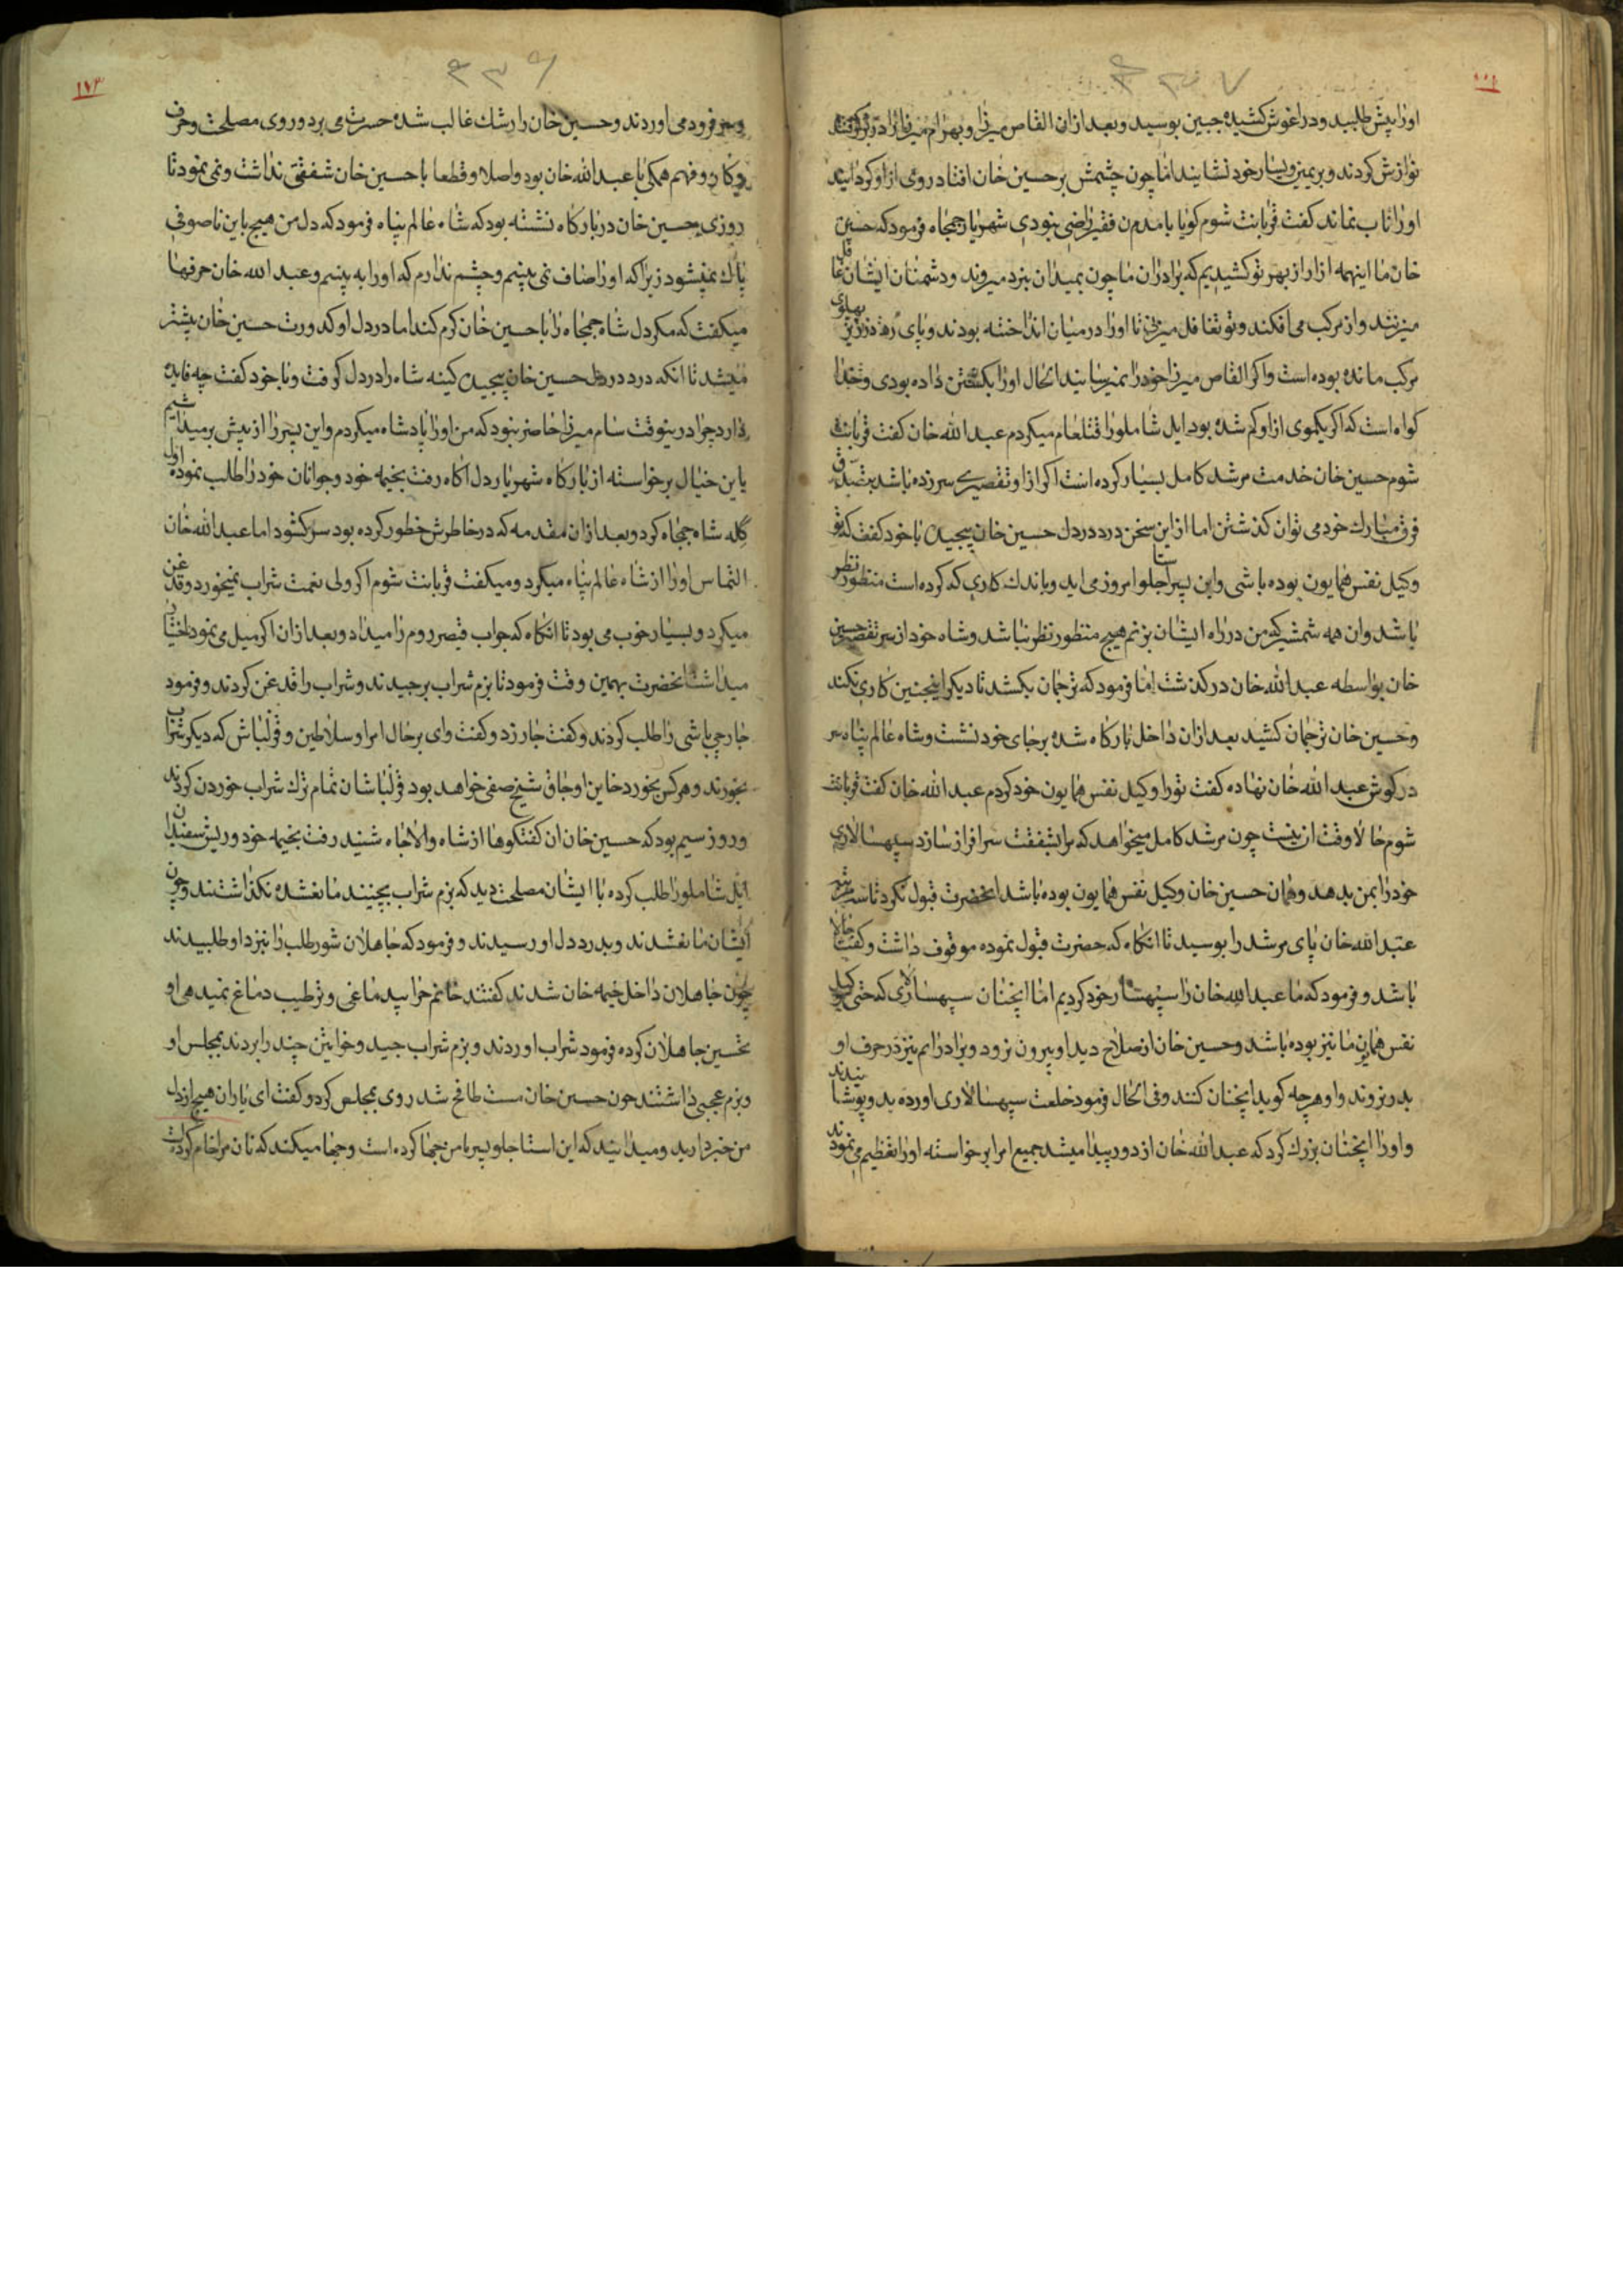 ۴۳۷
اورا پیش طلبید و در اغوش کشیده جبین بوسید و بعد ازان القاص میرزا و بهرام میرزا را در بر گرفتند
نوازش کردند و بر یمین و یسار خود نشانیند اما چون چشمش بر حسین خان افتاد روی از او کردانیند
اورا تاب نماند کفت قربانت شوم کویا بامدن فقیر راضی نبودی شهریار جمجاه فرمود که حسین
خان ما اینهمه ازار از بهر تو کشیدیم که برادران ما چون بمیدان نبرد میروند و دشمنان ایشان غافل
میزنند و از مرکب می افکنند و تو تغافل میزنی تا اورا در میان انداخته بودند و پای در زیر پهلوی
مرکب مانده بوده است و اکر القاص میرزا خود را نمیرسانید الحال اورا بکشتن داده بودی و خدا
کواه است که اکر یکموی از او کم شده بود ایل شاملو را قتلعام میکردم عبد الله خان کفت قربانت
شوم حسین خان خدمت مرشد کامل بسیار کرده است اکر از او تقصیری سر زده باشد بتصدق
فرق مبارک خود می توان کذشتن اما از این سخن درد در دل حسین خان پیچید با خود کفت که تو
وکیل نفس همایون بوده باشی و این پسر استاجلو امروز می اید و باندک کاری که کرده است منظور نظر
باشد وان همه شمشیر که من در راه ایشان بزنم هیچ منظور نظر نباشد و شاه خود از سر تقصیر حسین
خان بواسطه عبد الله خان در کذشت اما فرمود که ترجمان بکشد تا دیکر اینچنین کاری نکند
و حسین خان ترجمان کشید بعد ازان داخل بارکاه شده بر جای خود نشست و شاه عالم پناه سر
در کوش عبد الله خان نهاده کفت تورا وکیل نفس همایون خود کردم عبد الله خان کفت قربانت
شوم حالا وقت ان نیست چون مرشد کامل میخواهد که مرا بشفقت سرافراز سازد سپهسالاری
خود را بمن بدهد و همان حسین خان وکیل نفس همایون بوده باشد انحضرت قبول نکرد تا سه مرتبه
عبد الله خان پای مرشد را بوسید تا انکاه که حضرت قبول نموده موقوف داشت و کفت حالا
باشد و فرمود که ما عبد الله خان را سپهسالار خود کردیم اما انچنان سپهسالاری که حتی وکیل
نفس همایون ما نیز بوده باشد و حسین خان از صلاح دید او بیرون نرود و برادرانم نیز در حرف او
بدر نروند و او هرچه کوید انچنان کنند و فی الحال فرمود خلعت سپهسالاری اورده بدو پوشانیدند
و اورا انچنان بزرک کرد که عبد الله خان از دور پیدا میشد جمیع امرا برخواسته اورا تعظیم می نمودند
۱۷۳
۴۳۶
و سر فرود می اوردند و حسین خان را رشک غالب شده حسرت می برد و روی مصلحت و حرف
و کار و فهم همکی با عبد الله خان بود و اصلا و قطعا با حسین خان شفقتی نداشت و نمی نمود تا
روزی حسین خان در بارکاه نشسته بود که شاه عالم پناه فرمود که دل من هیچ باین ناصوفی
پاک نمیشود زیرا که اورا صاف نمی بینم و چشم ندارم که اورا به بینم و عبد الله خان حرفها
میکفت که مکر دل شاه جمجاه را با حسین خان کرم کند اما در دل او کدورت حسین خان بیشتر
میشد تا انکه درد در دل حسین خان پیچید کینه شاه را در دل کرفت و با خود کفت چه فایده
دارد چرا درینوقت سام میرزا حاضر نبود که من اورا پادشاه میکردم و این پسر را از پیش بر میداشتم
باین خیال برخواسته از بارکاه شهریار دل اکاه رفت بخیمه خود و جوانان خود را طلب نموده اول
کله شاه جمجاه کرد و بعد ازان مقدمه که در خاطرش خطور کرده بود سر کشود اما عبد الله خان
التماس اورا از شاه عالم پناه میکرد و میکفت قربانت شوم اکر ولی نعمت شراب نمیخورد و قدغن
میکرد و بسیار خوب می بود تا انکاه که جواب قیصر روم را میداد و بعد ازان اکر میل می نمود اختیار
میداشت انحضرت بهمین وقت فرمود تا بزم شراب برچیدند و شراب را قدغن کردند و فرمود
جارچی باشی را طلب کردند و کفت جار زد و کفت وای بر حال امرا و سلاطین و قزلباش که دیکر شراب
بخورند و هرکس بخورد خاین اوجاق شیخ صفی خواهد بود قزلباشان تمام ترک شراب خوردن کردند
و روز سیم بود که حسین خان ان کفتکوها از شاه والاجاه شنید رفت بخیمه خود و ریش سفیدان
ایل شاملو را طلب کرده با ایشان مصلحت دید که بزم شراب بچینند مانع شده نکذاشتند و چون
ایشان مانع شدند و بدرد دل او رسیدند و فرمود که جاهلان شور طلب را نیز داو طلبیدند
چون جاهلان داخل خیمه خان شدند کفتند خانم چرا بیدماغی و ترطیب دماغ نمیدهی او
تحسین جاهلان کرده فرمود شراب اوردند و بزم شراب چید و خوانین چند را بردند بمجلس او
و بزم عجبی داشتند چون حسین خان مست طافح شد روی بمجلس کرد و کفت ای یاران هیچ از دل
من خبر دارید و میدانید که این استاجلو پسر با من چها کرده است و چها میکند که نان مرا خام کرده است